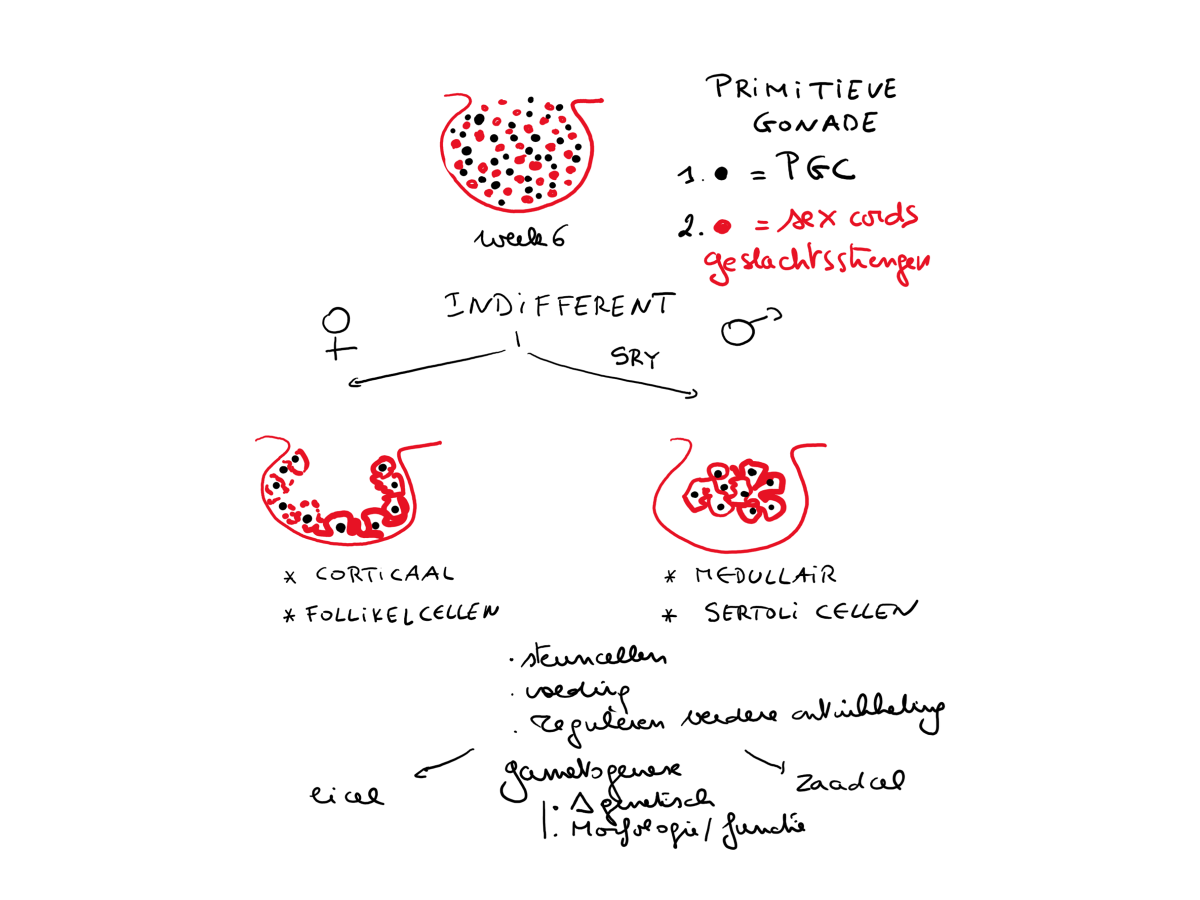 PRIMITIEVE
GONADE
1. ● = PGC
2. ● = sex cords
geslachtsstrengen
week 6
INDIFFERENT
♀
♂
SRY
* CORTICAAL
* FOLLIKELCELLEN
* MEDULLAIR
* SERTOLI CELLEN
· steuncellen
· voeding
· reguleren verdere ontwikkeling
gametogenese
eicel
zaadcel
· Δ genetisch
· Morfologie / functie